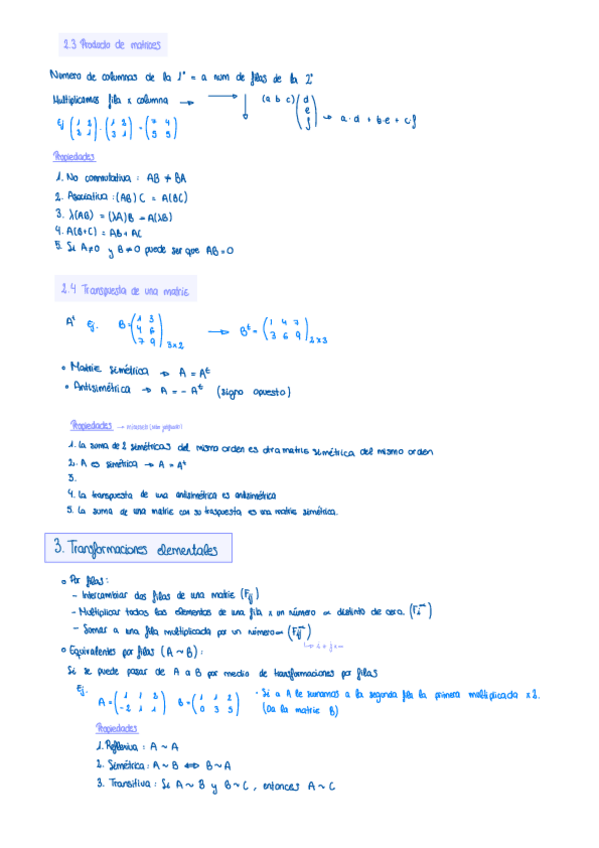 2.3 Producto de matrices
Número de columnas de la 1ª = a num de filas de la 2ª
Multiplicamos fila x columna → → ↓ (a b c) (d e f) → a·d + b·e + c·f
Ej (1 2 / 2 1) · (1 2 / 3 1) = (7 4 / 5 5)
Propiedades
1. No conmutativa : AB ≠ BA
2. Asociativa : (AB) C = A(BC)
3. λ(AB) = (λA)B = A(λB)
4. A(B+C) = AB + AC
5. Si A≠0 y B≠0 puede ser que AB=0
2.4 Transpuesta de una matriz
Aᵗ Ej. B=(1 3 / 4 6 / 7 9) 3x2 → Bᵗ = (1 4 7 / 3 6 9) 2x3
• Matriz simétrica → A = Aᵗ
• Antisimétrica → A = - Aᵗ (signo opuesto)
Propiedades →
1. La suma de 2 simétricas del mismo orden es otra matriz simétrica del mismo orden
2. A es simétrica → A = Aᵗ
3.
4. La transpuesta de una antisimétrica es antisimétrica
5. La suma de una matriz con su traspuesta es una matriz simétrica.
3. Transformaciones elementales
• Por filas:
- Intercambiar dos filas de una matriz (Fij)
- Multiplicar todos los elementos de una fila x un número ∝ distinto de cero. (Fi^∝)
- Sumar a una fila multiplicada por un número ∝ (Fij^∝)
• Equivalentes por filas (A ~ B) :
Si se puede pasar de A a B por medio de transformaciones por filas
Ej. A = (1 1 2 / -2 1 1) B = (1 1 2 / 0 3 5) · Si a A le sumamos a la segunda fila la primera multiplicada x 2.
(Da la matriz B)
Propiedades
1. Reflexiva : A ~ A
2. Simétrica : A ~ B ⟺ B ~ A
3. Transitiva : Si A ~ B y B ~ C , entonces A ~ C